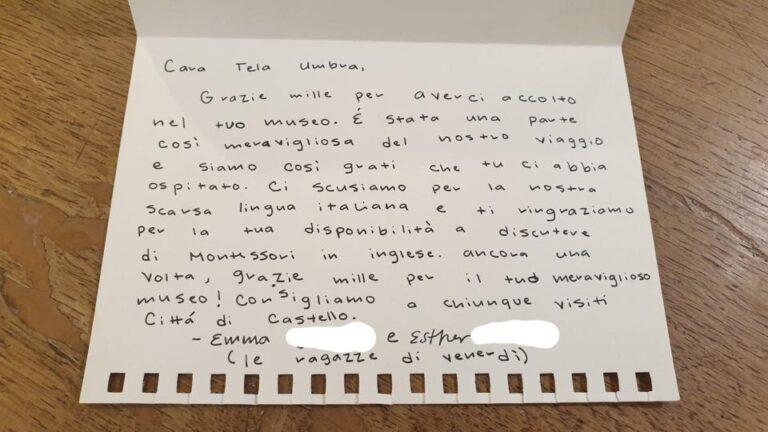 Cara Tela Umbra,
Grazie mille per averci accolto
nel tuo museo. É stata una parte
così meravigliosa del nostro viaggio
e siamo così grati che tu ci abbia
ospitato. Ci scusiamo per la nostra
scarsa lingua italiana e ti ringraziamo
per la tua disponibilità a discutere
di Montessori in inglese. ancora una
volta, grazie mille per il tuo meraviglioso
museo! Consigliamo a chiunque visiti
Cittá di Castello.
- Emma e Esther
(le ragazze di venerdì)